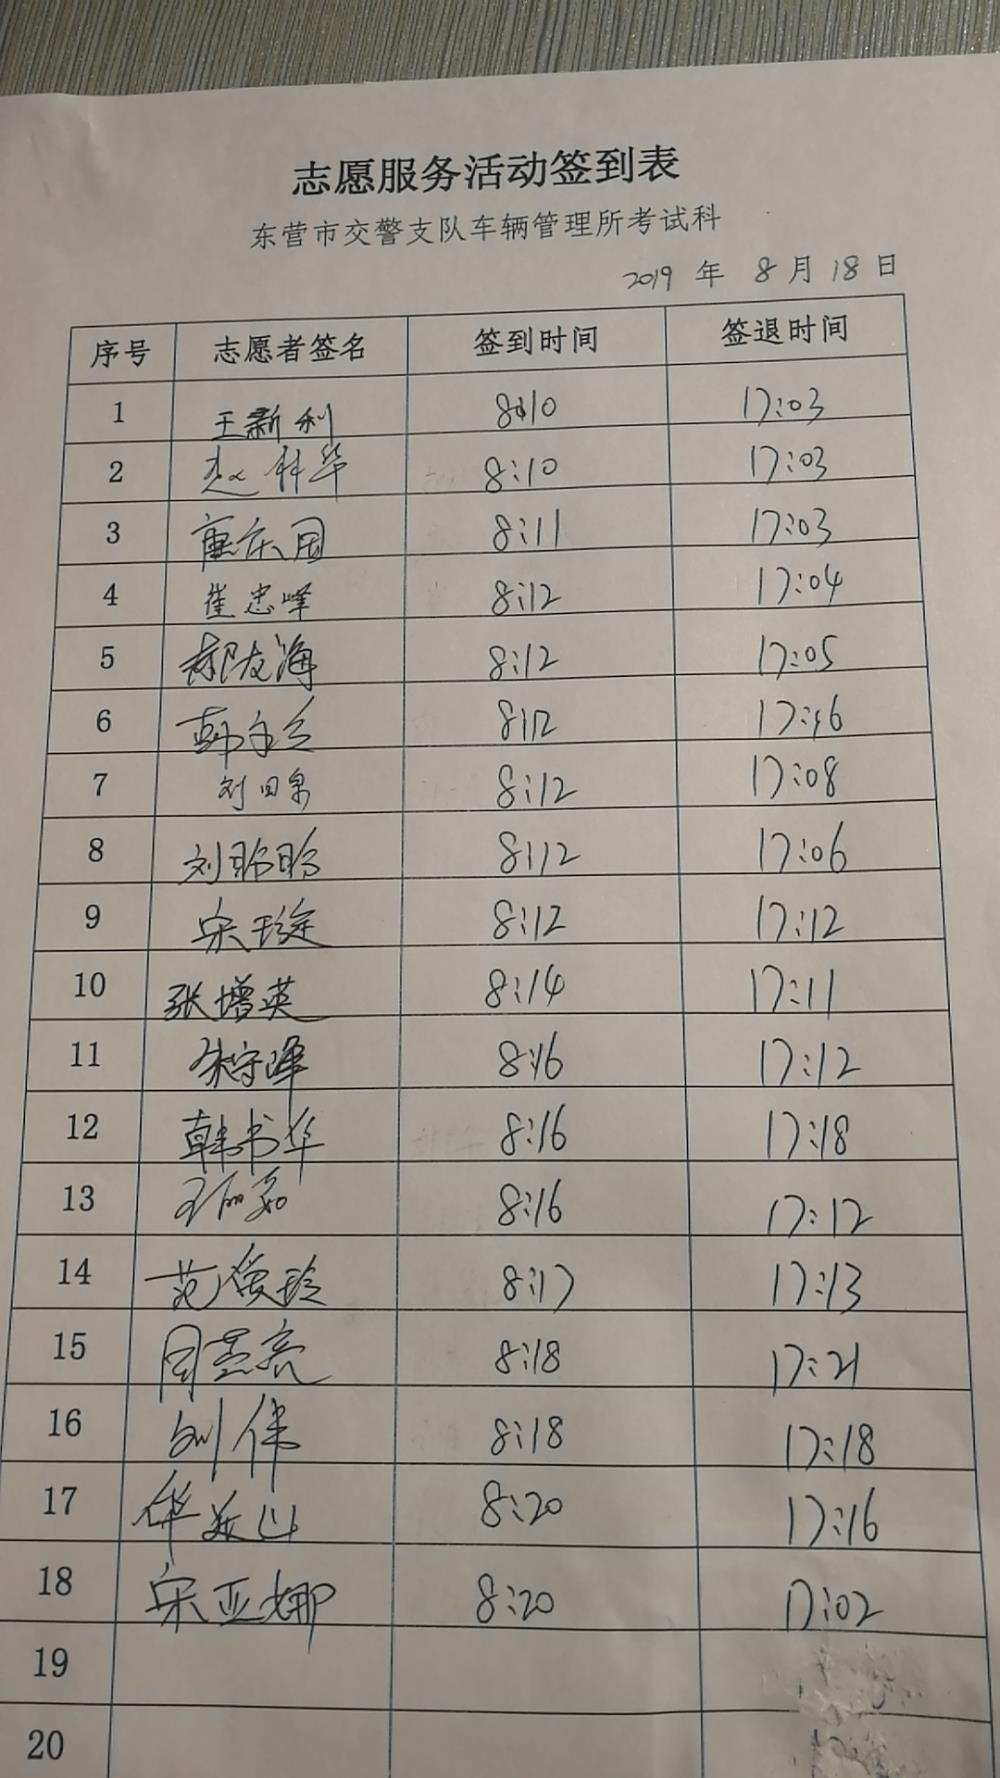 志愿服务活动签到表
东营市交警支队车辆管理所考试科
2019 年 8 月 18 日
序号 志愿者签名 签到时间 签退时间
1 王新利 8:10 17:03
2 赵 华 8:10 17:03
3 8:11 17:03
4 崔忠峰 8:12 17:04
5 郝友海 8:12 17:05
6 韩 8:12 17:16
7 刘日泉 8:12 17:08
8 刘盼盼 8:12 17:06
9 宋 8:12 17:12
10 张增英 8:14 17:11
11 守峰 8:16 17:12
12 韩书华 8:16 17:18
13 王丽 8:16 17:12
14 范俊玲 8:17 17:13
15 周 亮 8:18 17:21
16 刘伟 8:18 17:18
17 8:20 17:16
18 宋亚娜 8:20 17:02
19
20